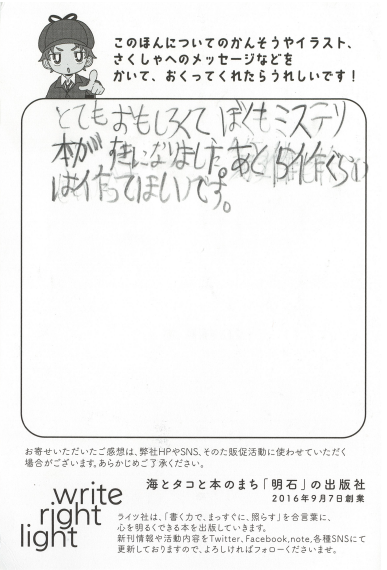 このほんについてのかんそうやイラスト、
さくしゃへのメッセージなどを
かいて、おくってくれたらうれしいです！
とてもおもしろくて、ぼくもミステリ
本が、すきになりました。あと 5作ぐらい
は作ってほしいです。
お寄せいただいたご感想は、弊社HPやSNS、そのた販促活動に使わせていただく
場合がございます。あらかじめご了承ください。
海とタコと本のまち「明石」の出版社
2016年9月7日創業
write
right
light
ライツ社は、「書く力で、まっすぐに、照らす」を合言葉に、
心を明るくできる本を出版していきます。
新刊情報や活動内容をTwitter、Facebook,note,各種SNSにて
更新しておりますので、よろしければフォローくださいませ。